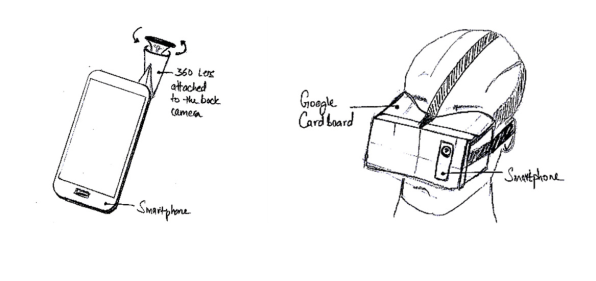 360 Lens
attached
to the back
camera
Smartphone
Google
Cardboard
Smartphone